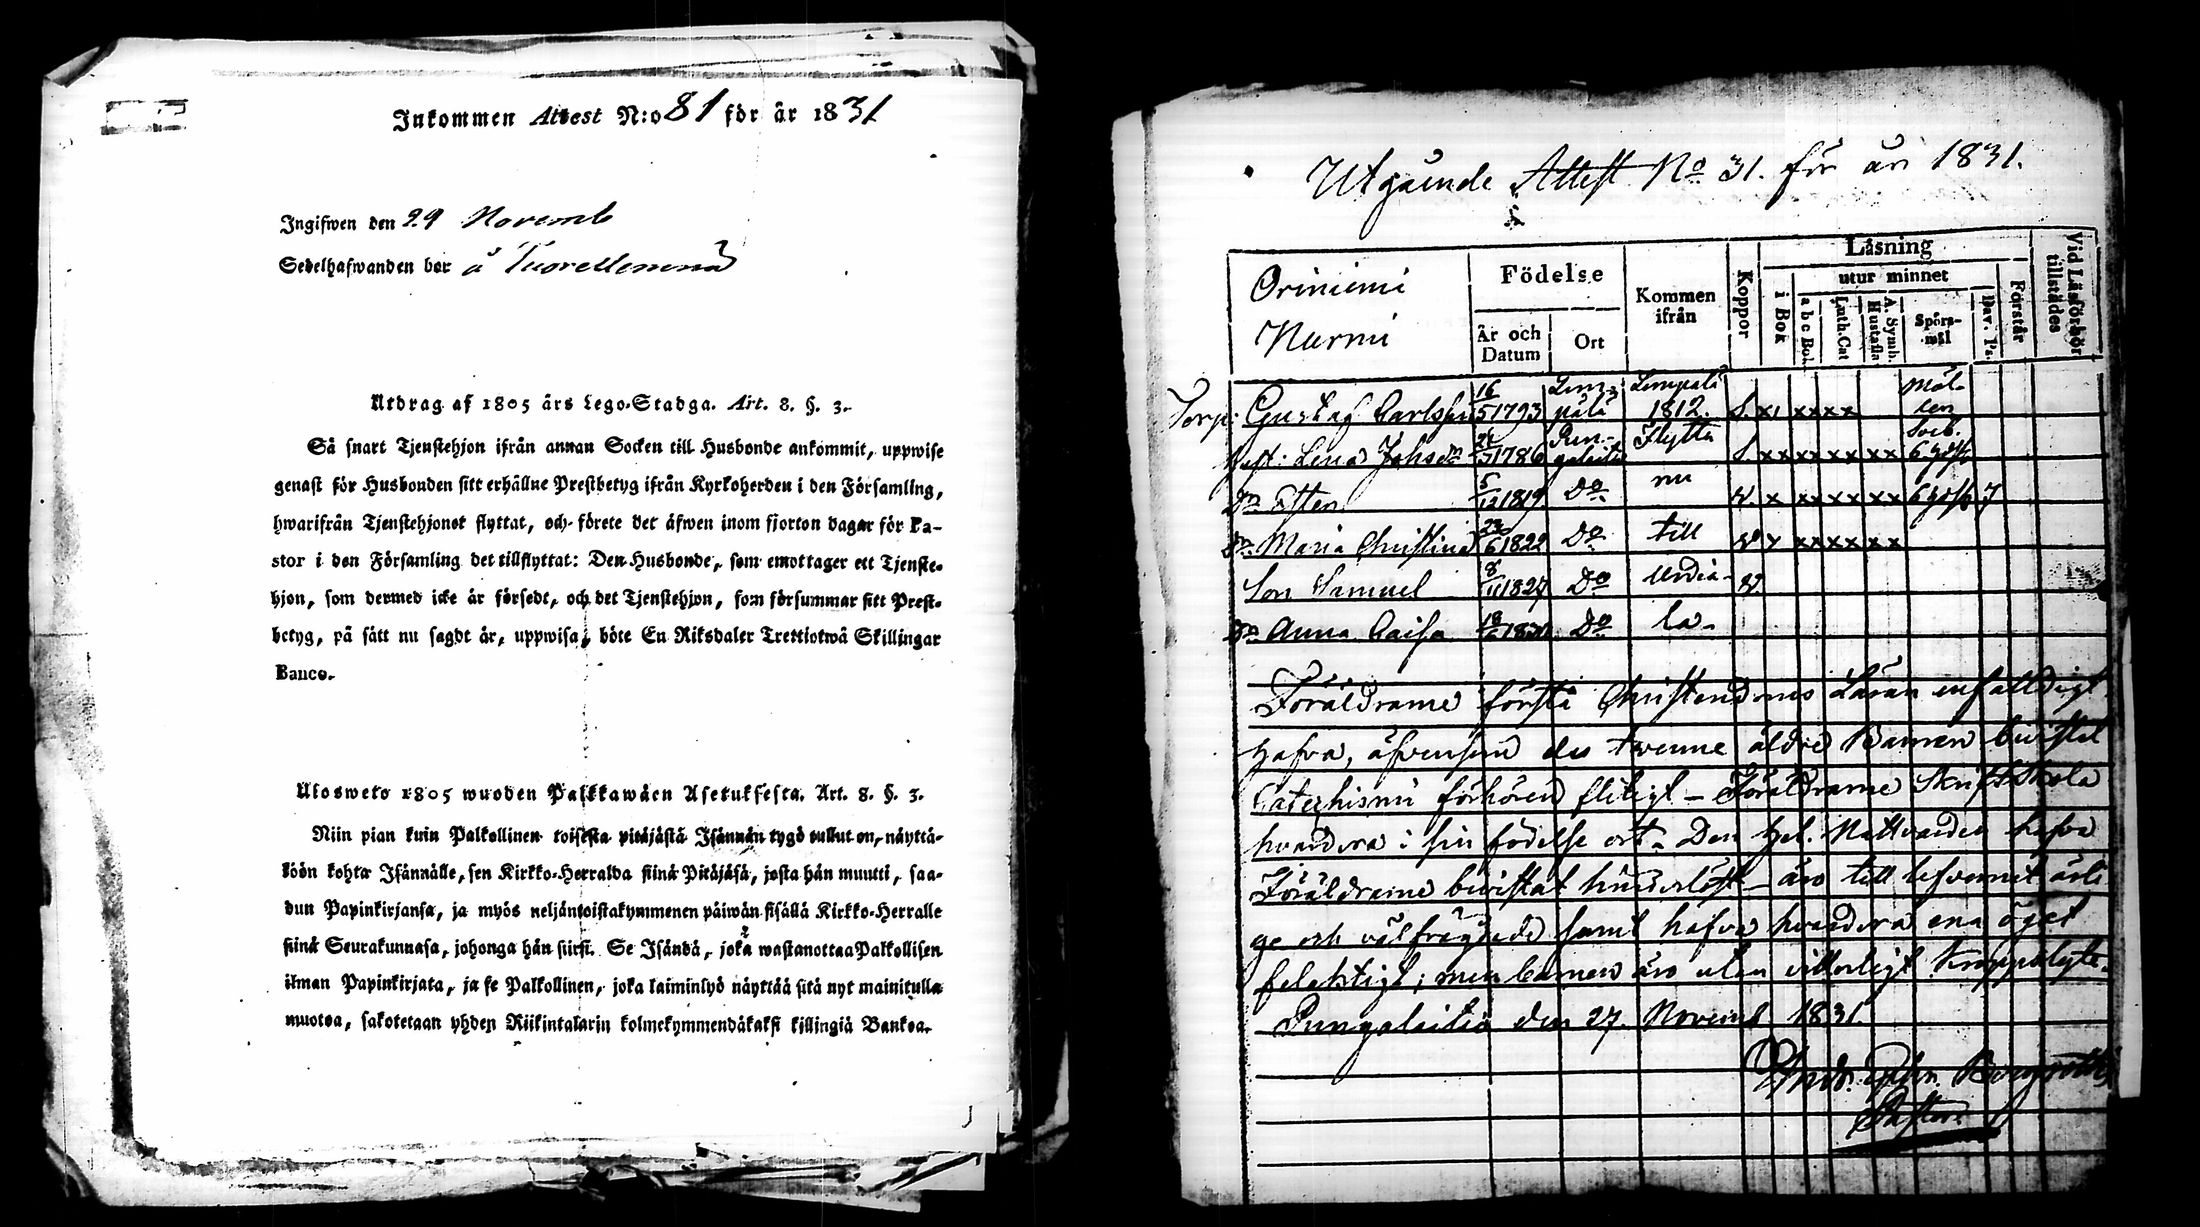 Inkommen Attest N:o 81 för år 1831
Ingifwen den 29 Novemb
Sedelhafwanden bor å Tuorellenmä
Utdrag af 1805 års Lego-Stadga. Art. 8. §. 3.
Så snart Tjenstehjon ifrån annan Socken till Husbonde ankommit, uppwise
genast för Husbonden sitt erhållne Prestbetyg ifrån Kyrkoherden i den Församling,
hwarifrån Tjenstehjonet flyttat, och förete det äfwen inom fjorton dagar för Pa-
stor i den Församling det tillflyttat: Den Husbonde, som emottager ett Tjenste-
hjon, som dermed icke är försedt, och det Tjenstehjon, som försummar sitt Prest-
betyg, på sätt nu sagdt är, uppwisa, böte En Riksdaler Trettiotwå Skillingar
Banco.
Ulosweto 1805 wuoden Palkkawäen Asetuksesta. Art. 8. §. 3.
Niin pian kuin Palkollinen toisesta pitäjästä Isännän tygö tullut on, näyttä-
köön kohta Isännälle, sen Kirkko-Herralda siinä Pitäjäsä, josta hän muutti, saa-
dun Papinkirjansa, ja myös neljäntoistakymmenen päiwän sisällä Kirkko-Herralle
siinä Seurakunnasa, johonga hän siirsi. Se Isändä, joka wastanottaa Palkollisen
ilman Papinkirjata, ja se Palkollinen, joka laiminlyö näyttää sitä nyt mainitulla
muotoa, sakotetaan yhden Riikintalarin kolmekymmendäkaksi killingiä Bankoa.
Utgående Attest No 31. för år 1831.
Oriniemi
Nurmi
Födelse
År och Datum
Ort
Kommen ifrån
Koppor
Läsning
i Bok
utur minnet
a b c Bok
Luth. Cat
A. Symb. Hustafla
Spörs-mål
Dav. Ps.
Förstår
Vid Läsförhör tillstädes
Torp: Gustaf Carlsson 16/5 1793 Lempälä Lempälä 1812. S. x xxxx
Hust: Lena Johsdr 1786 Pungalaitio Flytta S x xxxxxx
Dr Esther 5/12 1819 Do nu v. x xxxxxx
Dr. Maria Christina 23/6 1822 Do till v x xxxxxx
Son Samuel 8/11 1827 Do Urdia- v.
Dr Anna Caisa Do la-
Föräldrarne förstå Christendoms Läran enfalldigt
hafva, äfvensom des tvenne äldre Barnen bevistat
Catechismi förhören flitigt - Föräldrarne Skriftskola
hvardera i sin födelse ort. Den hel. Nattvarden hafva
Föräldrarne bevistat hinderlöst - äro till lefvernet ärli
ge och välfrägdade samt hafva hvardera ena ögat
felaktigt; men barnen äro utan vitterligt kroppslyte.
Pungalaitio den 27. Novemb 1831.
Pastor